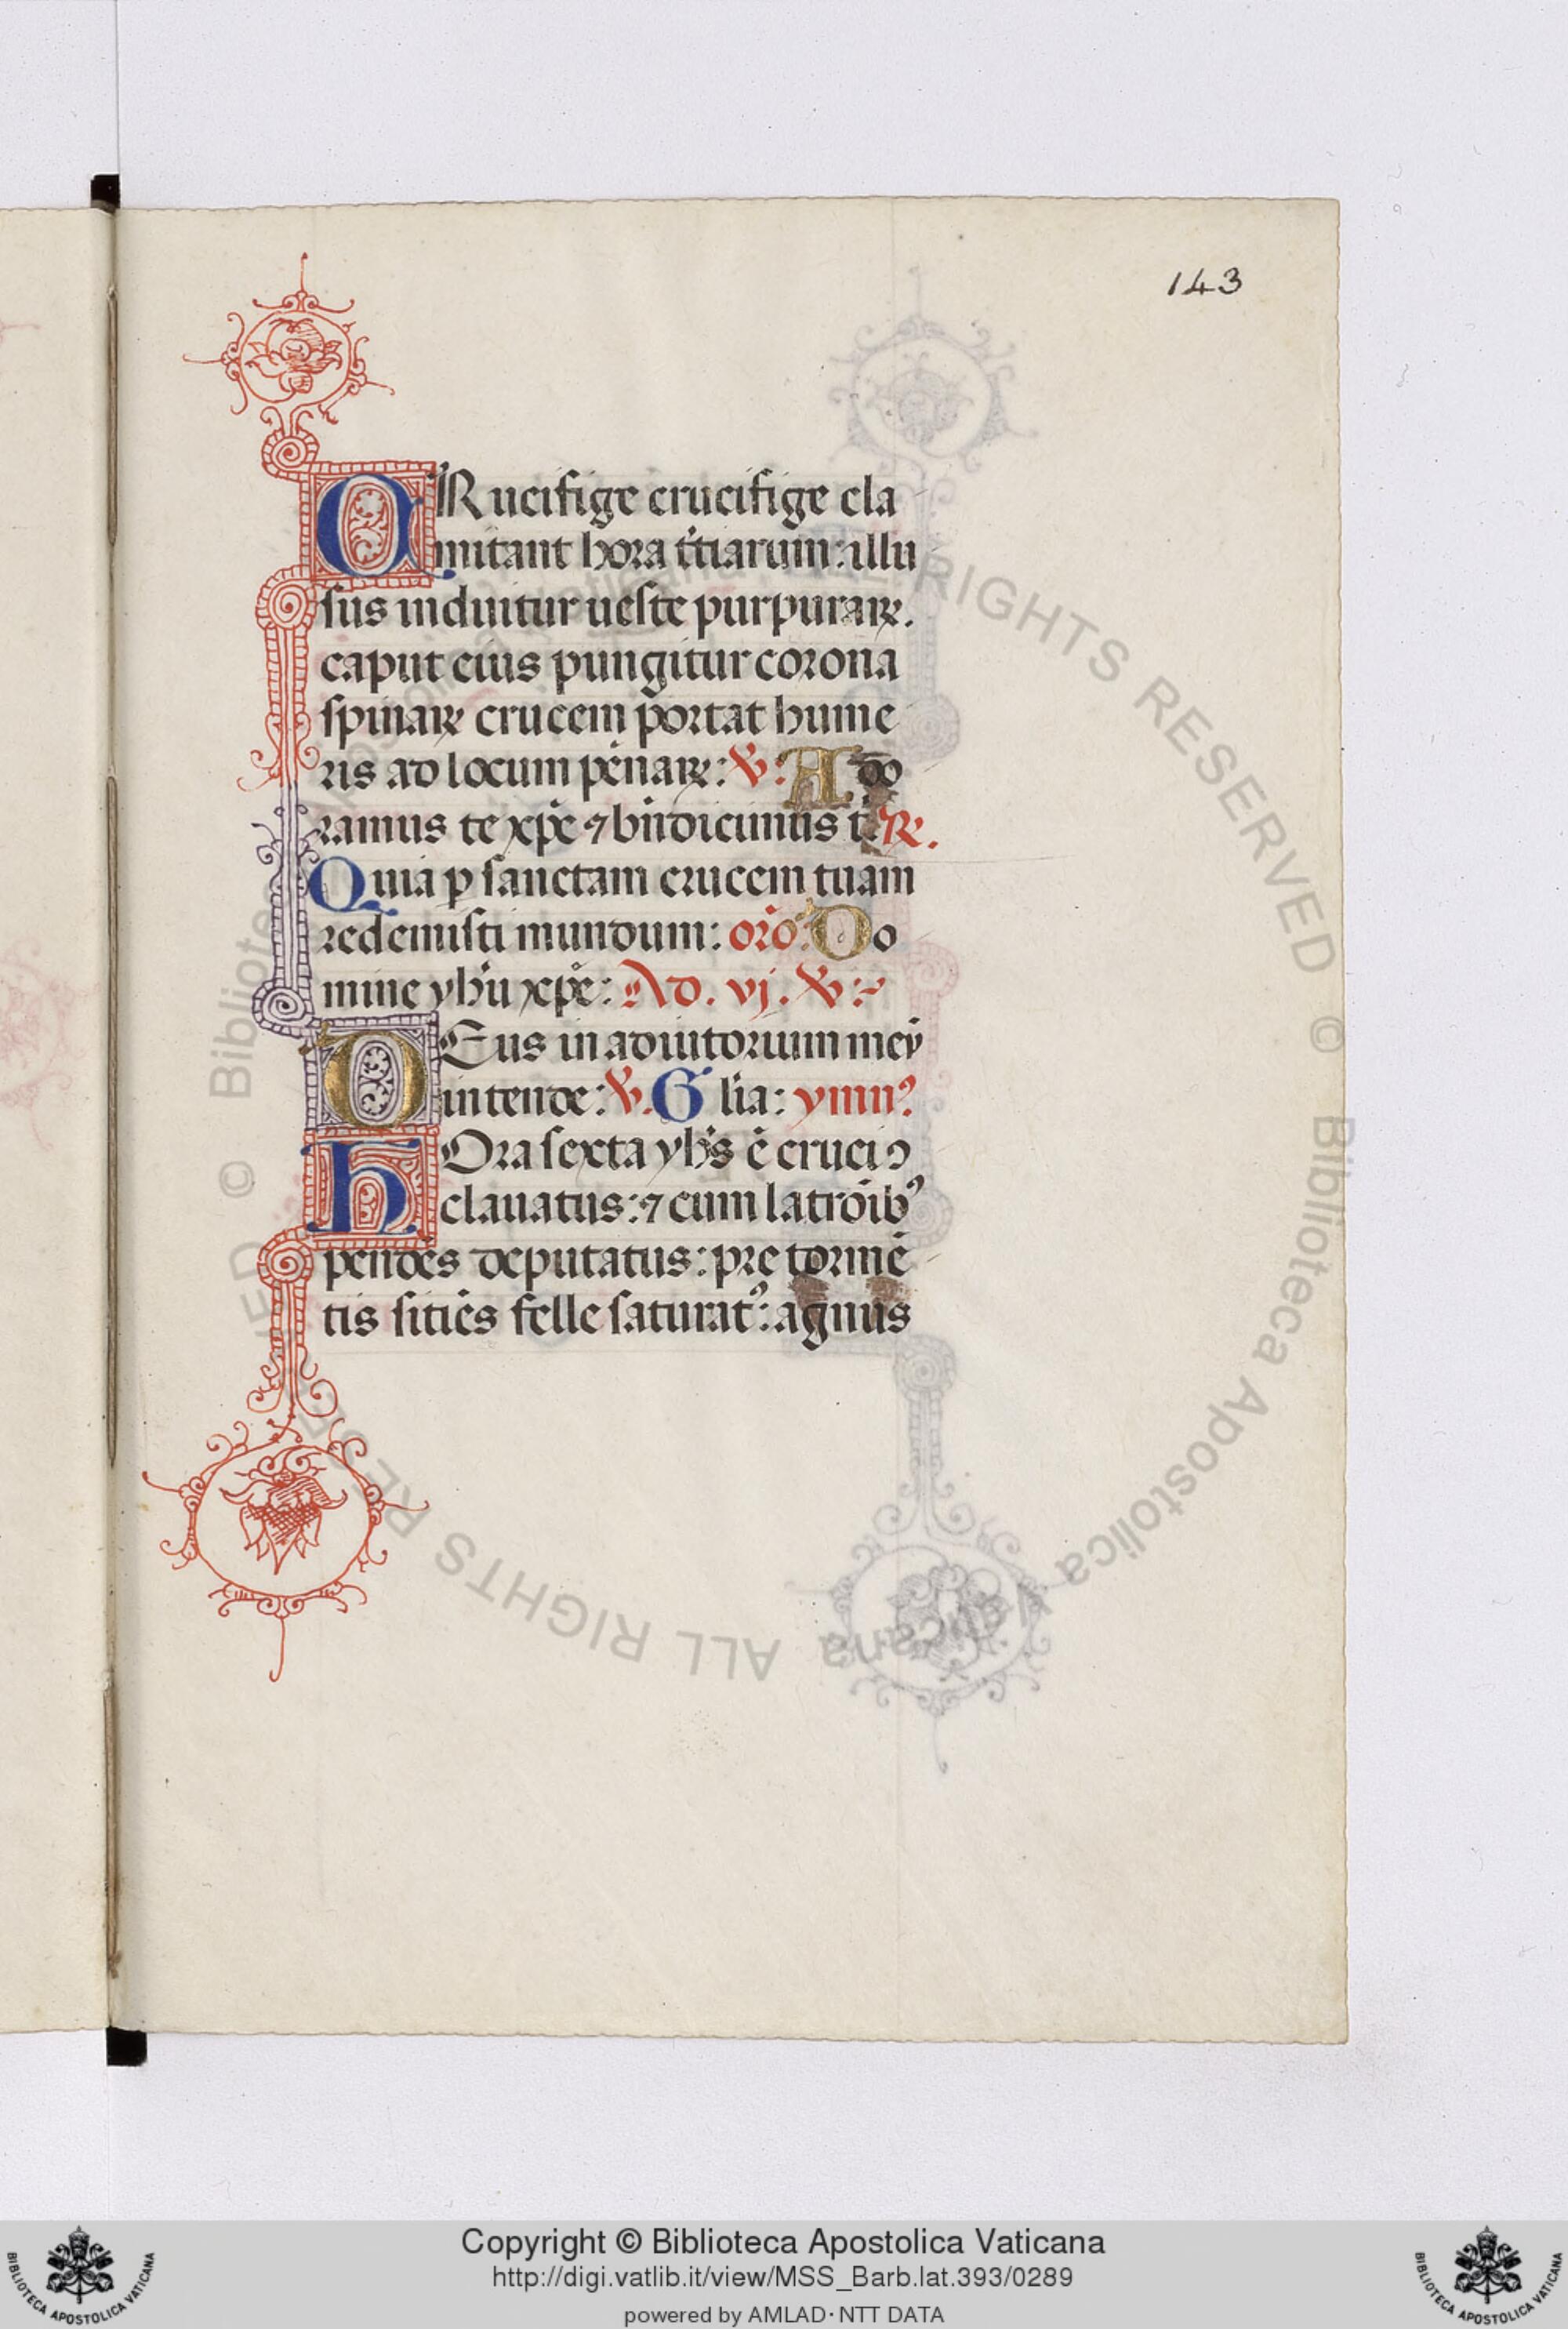 143
CRucifige crucifige cla
mitant hora t̉tiarum: illu
sus induitur ueste purpuraꝝ.
caput eius pungitur corona
spinaꝝ crucem portat hume
ris ad locum pēnaꝝ: ℣: Ado
ramus te xp̄e ⁊ bn̄dicimus t. ℟.
Quia ꝑ sanctam crucem tuam
redemisti mundum: orō: Do
mine yhū xp̄e: Ad. vj. ℣:
DEus in adiutorium meȳ
intende: ℣. Glīa: ymnꝰ
HOra sexta yhs̄ ē cruci ꝯ
clauatus: ⁊ cum latrōibꝰ
pendēs deputatus: pre tormē
tis sitiēs felle saturatꝰ: agnus
© Biblioteca Apostolica Vaticana ALL RIGHTS RESERVED
© Biblioteca Apostolica Vaticana ALL RIGHTS RESERVED
Copyright © Biblioteca Apostolica Vaticana
http://digi.vatlib.it/view/MSS_Barb.lat.393/0289
powered by AMLAD·NTT DATA
BIBLIOTECA APOSTOLICA VATICANA
BIBLIOTECA APOSTOLICA VATICANA